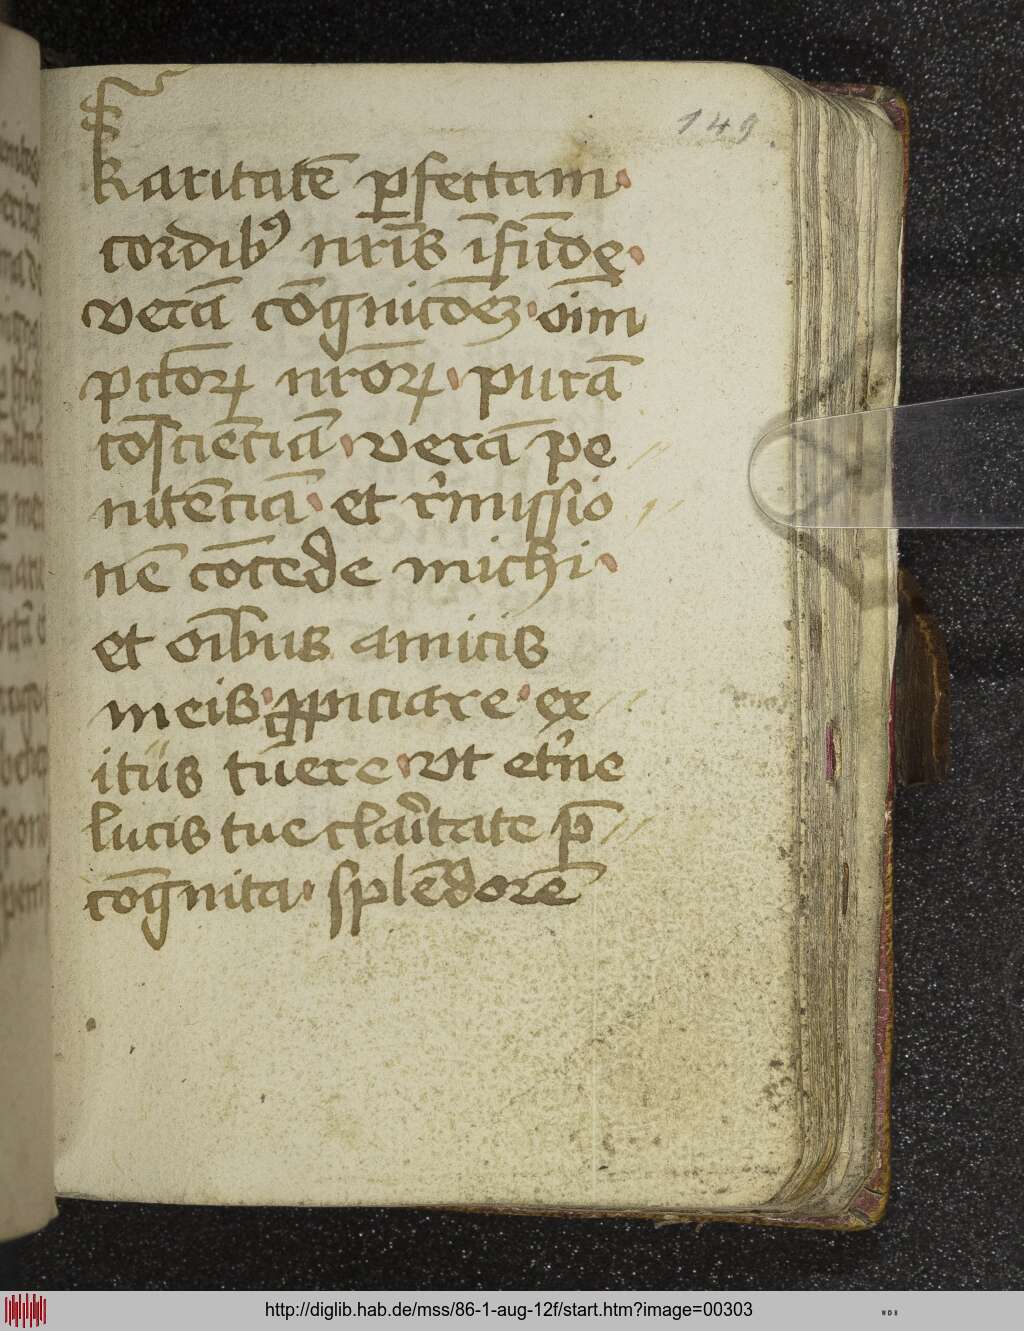 149
Karitatē ꝑfectam
cordibꝰ nr̄is īfūde
verā cōgnicōeꝫ oīm
pctōrꝝ nrōrꝝ purā
cōsciēciā verā pe
nitēciā et r̓missio
nē cōcede michi
et oībus amicis
meis ꝓpiciare ex
itūs tuere vt et̓ne
lucis tue clar̓itate p̄
cōgnita splēdorē
http://diglib.hab.de/mss/86-1-aug-12f/start.htm?image=00303